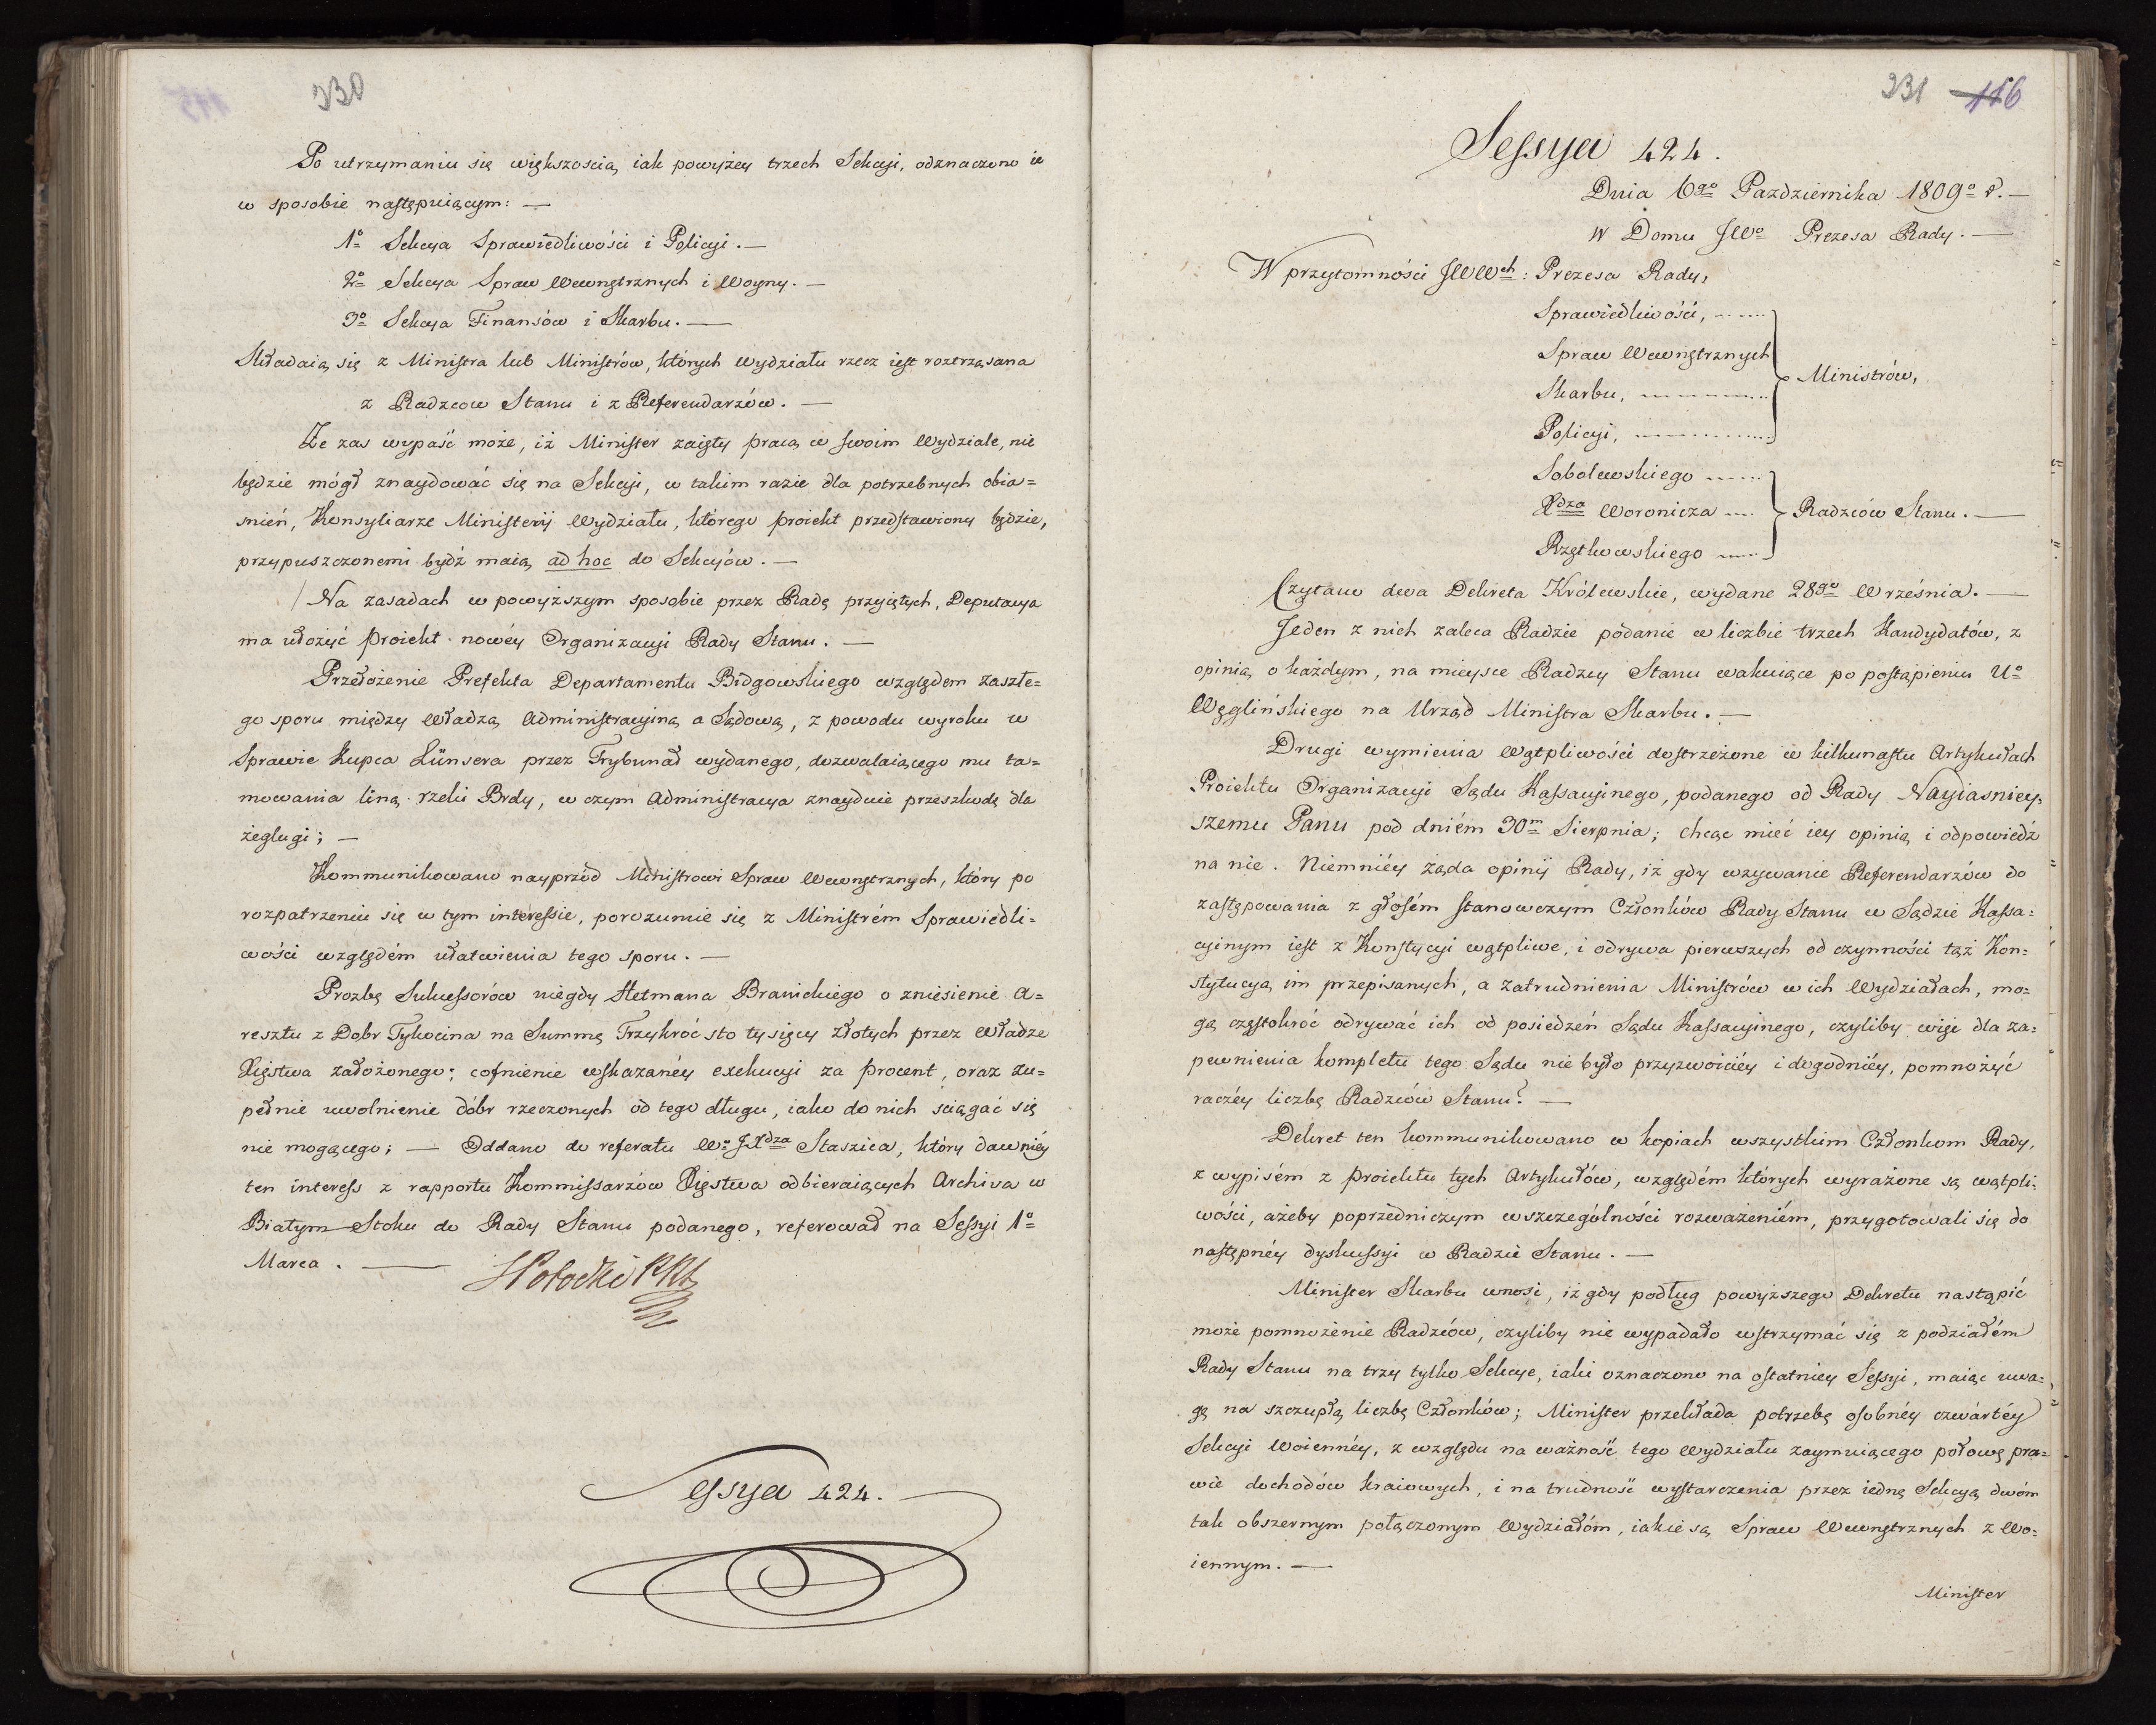 330
Po utrzymaniu się większością, iak powyżey trzech Sekcyi, odznaczono ie
w sposobie następuiącym: —
1º Sekcya Sprawiedliwości i Policyi. —
2º Sekcya Spraw Wewnętrznych i Woyny. —
3º Sekcya Finansów i Skarbu. —
Składaią się z Ministra lub Ministrów, których Wydziału rzecz iest roztrząsana
z Radzcow Stanu i z Referendarzów. —
Że zas wypaść może, iż Minister zaięty pracą w swoim Wydziale, nie
będzie mógł znaydować się na Sekcyi, w takim razie dla potrzebnych obia=
snień, Konsyliarze Ministerij Wydziału, którego proiekt przedstawiony będzie,
przypuszczonemi bydź maią, ad hoc do Sekcyów. —
Na zasadach w powyższym sposobie przez Radę przyiętych, Deputacya
ma ułożyć proiekt nowéy Organizacyi Rady Stanu. —
Przełożenie Prefekta Departamentu Bidgowskiego względem zaszłe=
go sporu między Władzą Administracyiną a Sądową, z powodu wyroku w
Sprawie Kupca Lünsera przez Trybunał wydanego, dozwalaiącego mu ta=
mowania liną rzeki Brdy, w czym Administracya znayduie przeszkodę dla
żeglugi; —
Kommunikowano nayprzód Ministrowi Spraw Wewnętrznych, który po
rozpatrzeniu się w tym interessie, porozumie się z Ministrém Sprawiedli=
wości względém ułatwienia tego sporu. —
Prozbę Sukcessorów niegdy Hetmana Branickiego o zniesienie A=
resztu z Dobr Tykocina na Summę Trzykroć sto tysięcy Złotych przez Władze
Xięstwa założonego; cofnienie wskazanéy exekucyi za procent, oraz zu=
pełnie uwolnienie dóbr rzeczonych od tego długu, iako do nich sciągać się
nie mogącego; — Oddano do referatu Wº JXdza Staszica, który dawniéy
ten interess z rapportu Kommissarzów Xięstwa odbieraiących Archiva w
Białym-Stoku do Rady Stanu podanego, referował na Sessyi 1º
Marca. —
SPotocki PRS
Sessya 424.
331 116
Sessya 424.
Dnia 6go Pazdziernika 1809º r. —
W Domu JWº Prezesa Rady. —
W przytomności JWWch: Prezesa Rady,
Sprawiedliwości,
Spraw Wewnętrznych
Skarbu,
Ministrów,
Policyi,
Sobolewskiego
Xdza Woronicza
Radzców Stanu. —
Rzętkowskiego
Czytano dwa Dekreta Królewskie, wydane 28go Września. —
Jeden z nich zaleca Radzie podanie w liczbie trzech Kandydatów, z
opinią o każdym, na mieysce Radzcy Stanu wakuiące po postąpieniu Uº
Węglińskiego na Urząd Ministra Skarbu. —
Drugi wymienia wątpliwości dostrzeżone w kilkunastu Artykułach
Proiektu Organizacyi Sądu Kassacyinego, podanego od Rady Nayiasniey=
szemu Panu pod dniém 30m Sierpnia; chcąc mieć iey opinią i odpowiedź
na nie. Niemniéy żąda opinij Rady, iż gdy wzywanie Referendarzów do
zastępowania z głosém stanowczym Członków Rady Stanu w Sądzie Kassa=
cyinym iest z Konstycyi wątpliwe, i odrywa pierwszych od czynności tąż Kon=
stytucyą im przepisanych, a zatrudnienia Ministrów w ich Wydziałach, mo=
gą częstokroć odrywać ich od posiedzeń Sądu Kassacyinego, czyliby więc dla za=
pewnienia kompletu tego Sądu nie było przyzwoiciéy i dogodniéy, pomnożyć
raczéy liczbę Radzców Stanu? —
Dekret ten kommunikowano w kopiach wszystkim Członkom Rady,
z wypisém z proiektu tych Artykułów, względém których wyrażone są wątpli=
wości, ażeby poprzedniczym w szczególności rozważeniém, przygotowali się do
następnéy dyskussyi w Radzie Stanu. —
Minister Skarbu wnosi, iż gdy podług powyższego Dekretu nastąpić
może pomnożenie Radzców, czyliby nie wypadało wstrzymać się z podziałém
Rady Stanu na trzy tylko Sekcye, iaki oznaczono na ostatniey Sessyi, maiąc uwa=
gę na szczupłą liczbę Członków; Minister przekłada potrzebę osobnéy czwartéy
Sekcyi Woiennéy, z względu na ważność tego Wydziału zaymuiącego połowę pra=
wie dochodów kraiowych, i na trudność wystarczenia przez iedną Sekcyą dwóm
tak obszernym połączonym Wydziałóm, iakie są, Spraw Wewnętrznych z Wo=
iennym. —
Minister